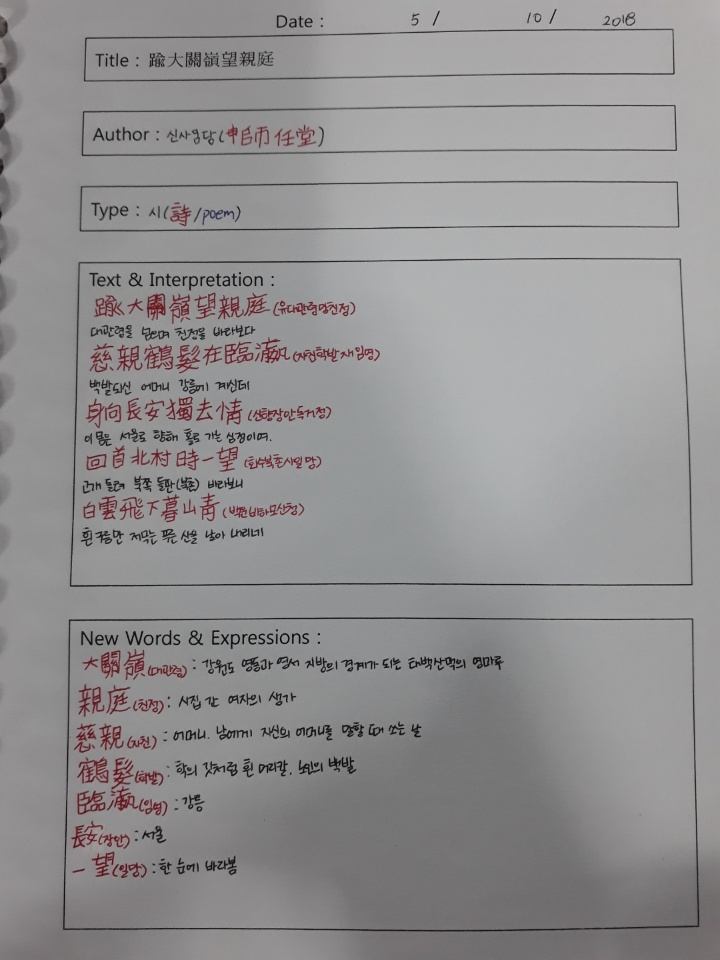 Date : 5 / 10 / 2018
Title : 踰大關嶺望親庭
Author : 신사임당(申師任堂)
Type : 시(詩/poem)
Text & Interpretation :
踰大關嶺望親庭(유대관령망친정)
대관령을 넘으며 친정을 바라보다
慈親鶴髮在臨瀛(자친학발재임영)
백발되신 어머니 강릉에 계신데
身向長安獨去情(신향장안독거정)
이 몸은 서울로 향해 홀로 가는 심정이여.
回首北村時一望(회수북촌시일망)
고개 돌려 북쪽 들판(북촌) 바라보니
白雲飛下暮山靑(백운비하모산청)
흰 구름만 저무는 푸른 산을 날아 내리네
New Words & Expressions :
大關嶺(대관령) : 강원도 영동과 영서 지방의 경계가 되는 태백산맥의 영마루
親庭(친정) : 시집 간 여자의 생가
慈親(자친) : 어머니. 남에게 자신의 어머니를 말할 때 쓰는 말
鶴髮(학발) : 학의 깃처럼 흰 머리칼. 노인의 백발
臨瀛(임영) : 강릉
長安(장안) : 서울
一望(일망) : 한 눈에 바라봄